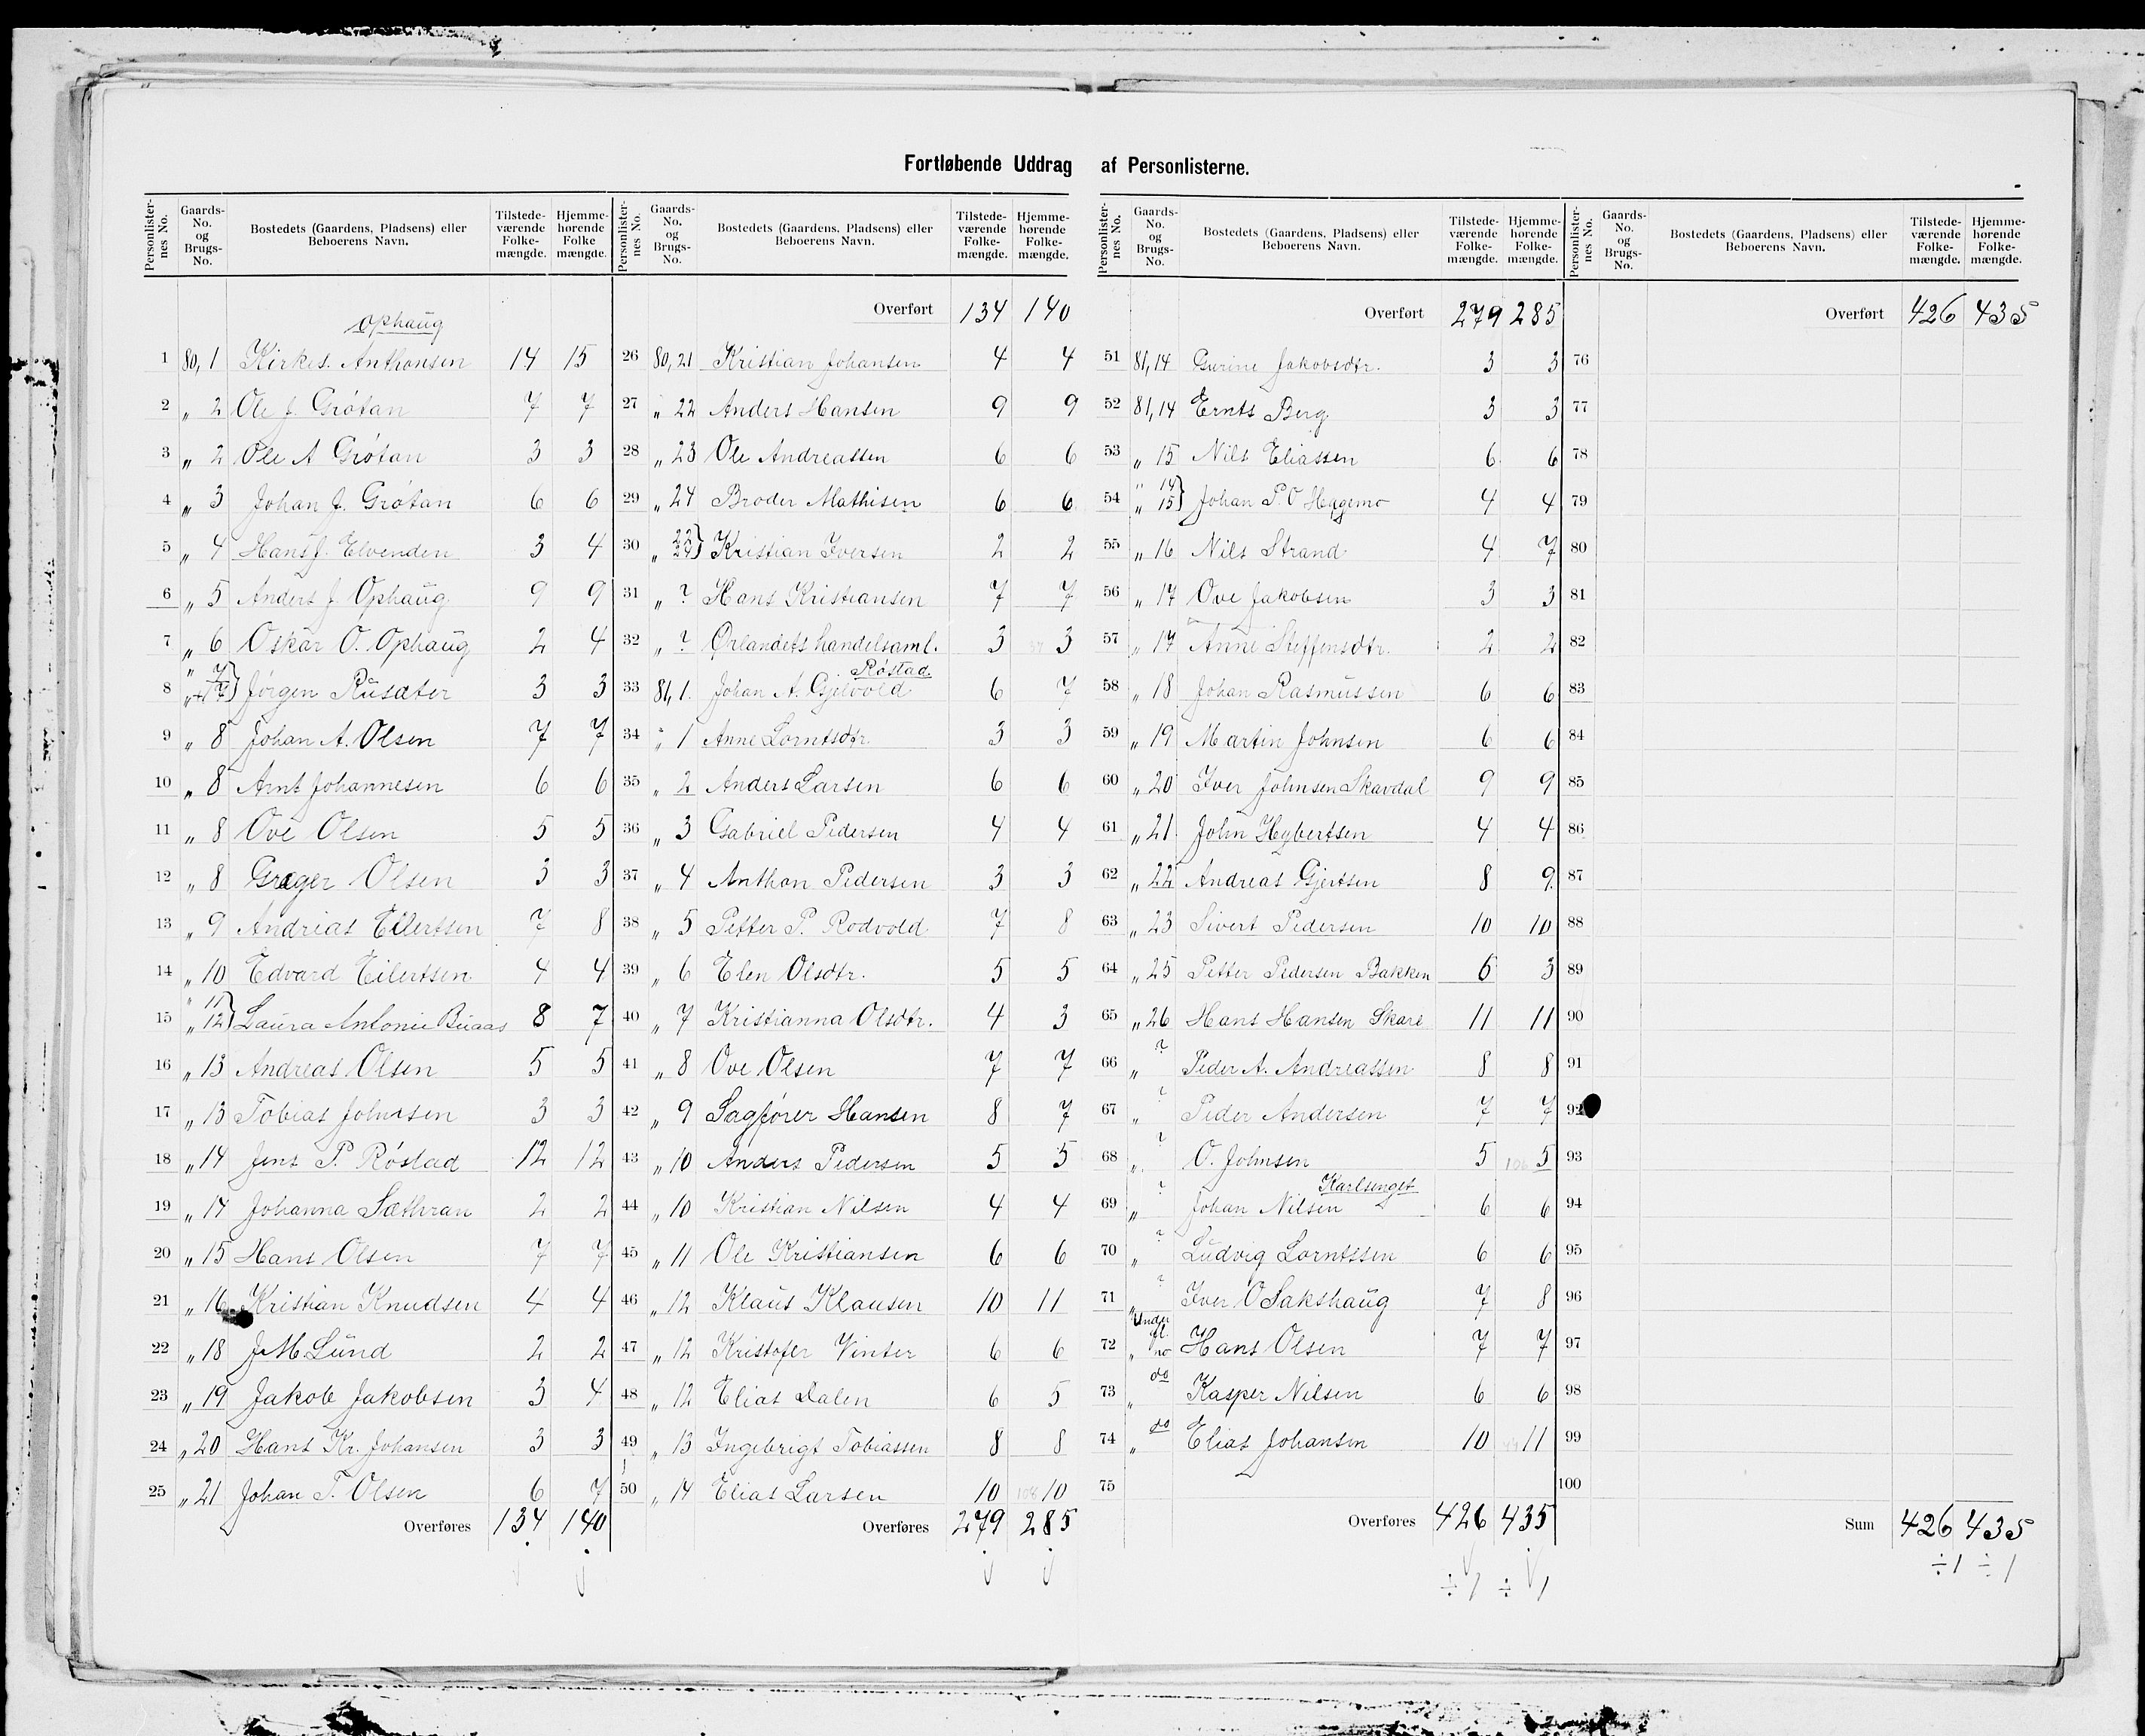 Fortløbende Uddrag af Personlisterne.
Personlisternes No. Gaards-No. og Brugs-No. Bostedets (Gaardens, Pladsens) eller Beboerens Navn. Tilstedeværende Folkemængde. Hjemmehørende Folkemængde.
Ophaug
1 80,1 Kirkes. Anthonsen 14 15
2 „ 2 Ole J. Grötan 7 7
3 „ 2 Ole A Grötan 3 3
4 „ 3 Johan J. Grötan 6 6
5 „ 4 Hans J. Elvenden 3 4
6 „ 5 Anders J. Ophaug 9 9
7 „ 6 Oskar O. Ophaug 2 4
8 „ 7 Jørgen Rusater 3 3
9 „ 8 Johan A. Olsen 7 7
10 „ 8 Arnt Johannesen 6 6
11 „ 8 Ove Olsen 5 5
12 „ 8 Greger Olsen 3 3
13 „ 9 Andreas Eilertsen 7 8
14 „ 10 Edvard Eilertsen 4 4
15 „ 11 „ 12} Laura Antonie Buaas 8 7
16 „ 13 Andreas Olsen 5 5
17 „ 13 Tobias Johnsen 3 3
18 „ 14 Jens P. Röstad 12 12
19 „ 14 Johanna Sæthran 2 2
20 „ 15 Hans Olsen 7 7
21 „ 16 Kristian Knudsen 4 4
22 „ 18 J M Lund 2 2
23 „ 19 Jakob Jakobsen 3 4
24 „ 20 Hans Kr. Johansen 3 3
25 „ 21 Johan T. Olsen 6 7
Overføres 134 140
Personlisternes No. Gaards-No. og Brugs-No. Bostedets (Gaardens, Pladsens) eller Beboerens Navn. Tilstedeværende Folkemængde. Hjemmehørende Folkemængde.
Overført 134 140
26 80,21 Kristian Johansen 4 4
27 „ 22 Anders Hansen 9 9
28 „ 23 Ole Andreassen 6 6
29 „ 24 Broder Mathisen 6 6
30 „ 22 24} Kristian Iversen 2 2
31 „ ? Hans Kristiansen 7 7
32 „ ? Ørlandets handelsaml. 3 3
Röstad
33 81,1. Johan A. Gjelvold 6 7
34 „ 1 Anne Lorntsdtr. 3 3
35 „ 2 Anders Larsen 6 6
36 „ 3 Gabriel Pedersen 4 4
37 „ 4 Anthon Pedersen 3 3
38 „ 5 Petter P. Rodvold 7 8
39 „ 6 Elen Olsdtr. 5 5
40 „ 7 Kristianna Olsdtr. 4 3
41 „ 8 Ove Olsen 7 7
42 „ 9 Sagfører Hansen 8 7
43 „ 10 Anders Pedersen 5 5
44 „ 10 Kristian Nilsen 4 4
45 „ 11 Ole Kristiansen 6 6
46 „ 12 Klaus Klausen 10 11
47 „ 12 Kristofer Vinter 6 6
48 „ 12 Elias Dalen 6 5
49 „ 13 Ingebrigt Tobiassen 8 8
50 „ 14 Elias Larsen 10 10
Overføres 279 285
Personlisternes No. Gaards-No. og Brugs-No. Bostedets (Gaardens, Pladsens) eller Beboerens Navn. Tilstedeværende Folkemængde. Hjemmehørende Folkemængde.
Overført 279 285
51 81,14 Gurine Jakobsdtr. 3 3
52 81,14 Ernts Berg 3 3
53 „ 15 Nils Eliassen 6 6
54 „ 14 „ 15} Johan P. O Heggemo 4 4
55 „ 16 Nils Strand 4 7
56 „ 17 Ove Jakobsen 3 3
57 „ 17 Anne Steffensdtr. 2 2
58 „ 18 Johan Rasmussen 6 6
59 „ 19 Martin Johnsen 6 6
60 „ 20 Iver Johnsen Skavdal 9 9
61 „ 21 John Hybertsen 4 4
62 „ 22 Andreas Gjertsen 8 9
63 „ 23 Sivert Pedersen 10 10
64 „ 25 Petter Pedersen Bakken 6 3
65 „ 26 Hans Hansen Skare 11 11
66 „ ? Peder A. Andreassen 8 8
67 „ ? Peder Andersen 7 7
68 „ ? O. Johnsen 5 5
Karlsenget
69 „ ? Johan Nilsen 6 6
70 „ ? Ludvig Lorntssen 6 6
71 „ ? Iver O Sakshaug 7 8
72 „ Under gl. no Hans Olsen 7 7
73 „ do Kasper Nilsen 6 6
74 „ do Elias Johansen 10 11
75
Overføres 426 435
÷ 1 ÷ 1
Personlisternes No. Gaards-No. og Brugs-No. Bostedets (Gaardens, Pladsens) eller Beboerens Navn. Tilstedeværende Folkemængde. Hjemmehørende Folkemængde.
Overført 426 435
76
77
78
79
80
81
82
83
84
85
86
87
88
89
90
91
92
93
94
95
96
97
98
99
100
Sum 426 435
÷1 ÷1